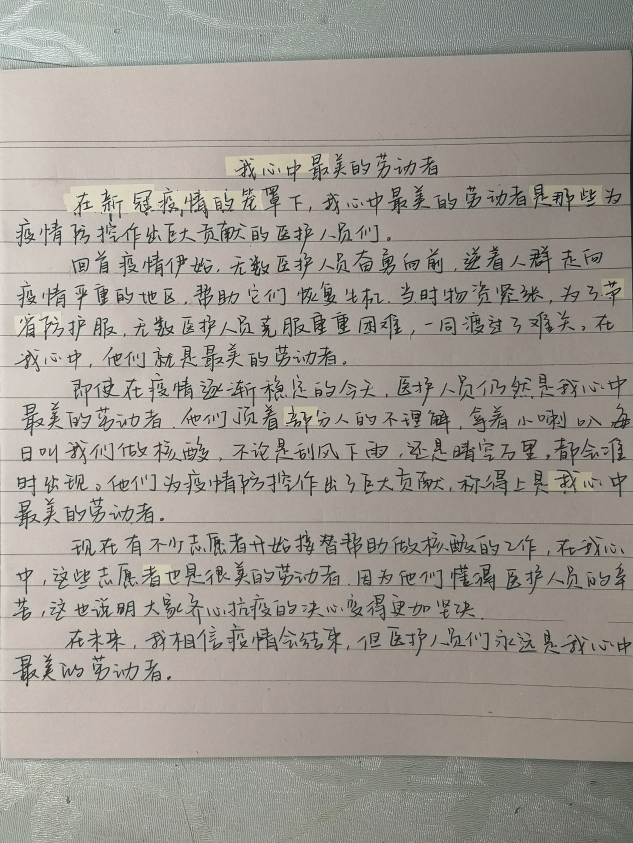 我心中最美的劳动者
在新冠疫情的笼罩下，我心中最美的劳动者是那些为
疫情防控作出巨大贡献的医护人员们。
回首疫情伊始，无数医护人员奋勇向前，逆着人群走向
疫情严重的地区，帮助它们恢复生机。当时物资紧张，为了节
省防护服，无数医护人员克服重重困难，一同渡过了难关。在
我心中，他们就是最美的劳动者。
即使在疫情逐渐稳定的今天，医护人员仍然是我心中
最美的劳动者。他们顶着部分人的不理解，拿着小喇叭每
日叫我们做核酸，不论是刮风下雨，还是晴空万里，都会准
时出现。他们为疫情防控作出了巨大贡献，称得上是我心中
最美的劳动者。
现在有不少志愿者开始接替帮助做核酸的工作，在我心
中，这些志愿者也是很美的劳动者。因为他们懂得医护人员的辛
苦，这也说明大家齐心抗疫的决心变得更加坚决。
在未来，我相信疫情会结束，但医护人员们永远是我心中
最美的劳动者。